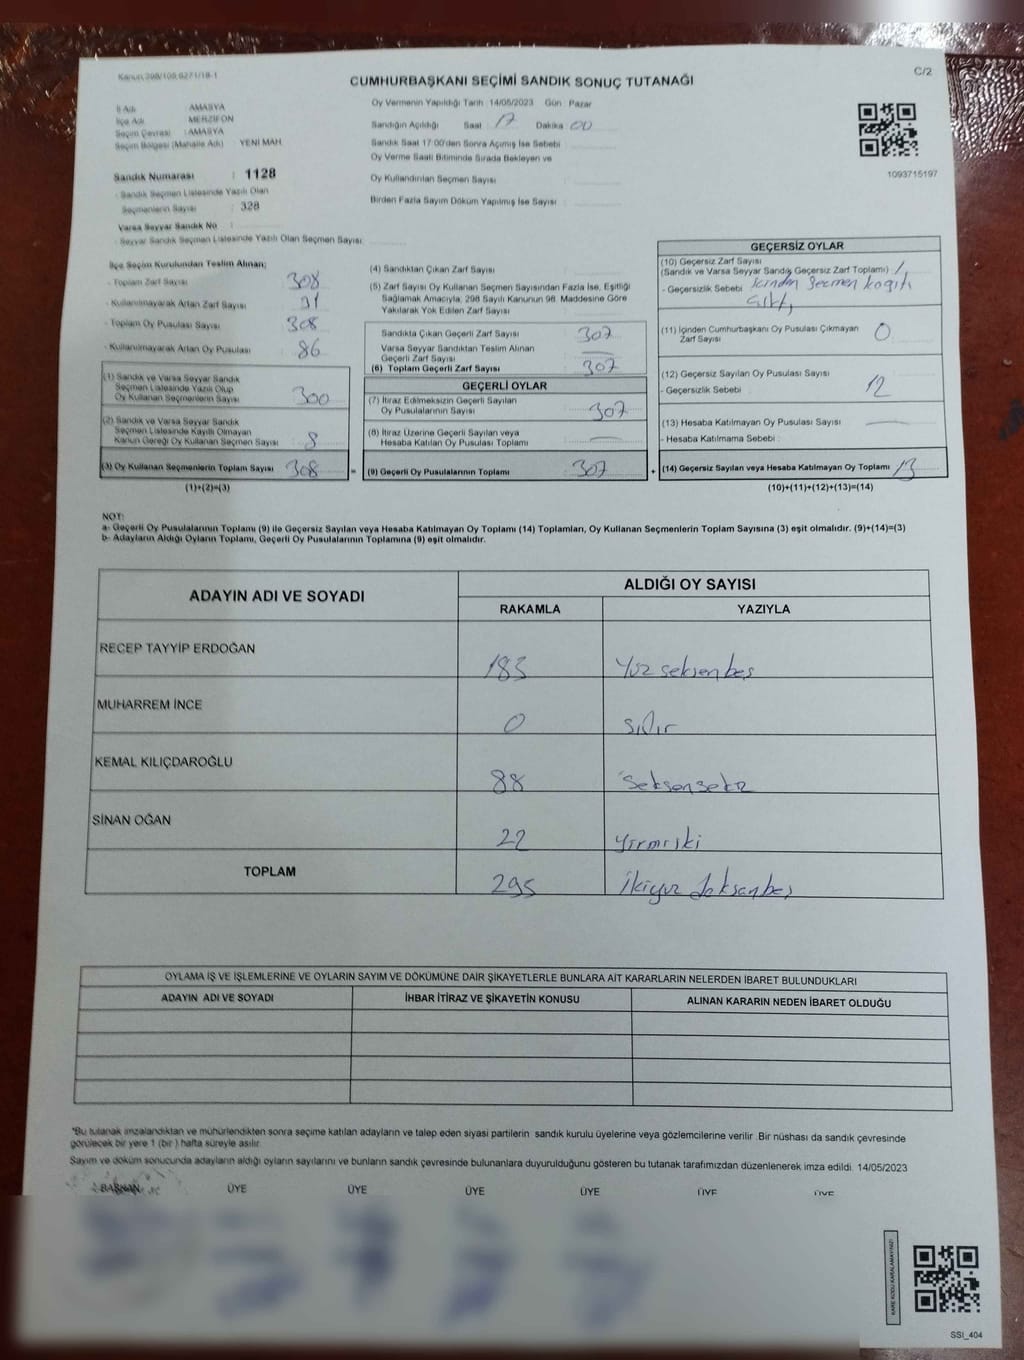 Kanun 298/105,6271/18-1
C/2
CUMHURBAŞKANI SEÇİMİ SANDIK SONUÇ TUTANAĞI
İl Adı : AMASYA
İlçe Adı : MERZİFON
Seçim Çevresi : AMASYA
Seçim Bölgesi (Mahalle Adı) YENİ MAH.
Sandık Numarası : 1128
- Sandık Seçmen Listesinde Yazılı Olan
Seçmenlerin Sayısı : 328
Varsa Seyyar Sandık No :
- Seyyar Sandık Seçmen Listesinde Yazılı Olan Seçmen Sayısı:
Oy Vermenin Yapıldığı Tarih : 14/05/2023 Gün : Pazar
Sandığın Açıldığı Saat : 17 Dakika : 00
Sandık Saat 17:00'den Sonra Açımış İse Sebebi :
Oy Verme Saati Bitiminde Sırada Bekleyen ve
Oy Kullandırılan Seçmen Sayısı :
Birden Fazla Sayım Döküm Yapılmış İse Sayısı :
1093715197
İlçe Seçim Kurulundan Teslim Alınan;
- Toplam Zarf Sayısı : 308
- Kullanılmayarak Artan Zarf Sayısı :
- Toplam Oy Pusulası Sayısı : 308
- Kullanılmayarak Artan Oy Pusulası : 86
(1) Sandık ve Varsa Seyyar Sandık
Seçmen Listesinde Yazılı Olup
Oy Kullanan Seçmenlerin Sayısı : 300
(2) Sandık ve Varsa Seyyar Sandık
Seçmen Listesinde Kayıtlı Olmayan
Kanun Gereği Oy Kullanan Seçmen Sayısı : 8
(3) Oy Kullanan Seçmenlerin Toplam Sayısı : 308
(1)+(2)=(3)
(4) Sandıktan Çıkan Zarf Sayısı :
(5) Zarf Sayısı Oy Kullanan Seçmen Sayısından Fazla İse, Eşitliği
Sağlamak Amacıyla, 298 Sayılı Kanunun 98. Maddesine Göre
Yakılarak Yok Edilen Zarf Sayısı :
Sandıkta Çıkan Geçerli Zarf Sayısı : 307
Varsa Seyyar Sandıktan Teslim Alınan
Geçerli Zarf Sayısı : —
(6) Toplam Geçerli Zarf Sayısı : 307
GEÇERLİ OYLAR
(7) İtiraz Edilmeksizin Geçerli Sayılan
Oy Pusulalarının Sayısı : 307
(8) İtiraz Üzerine Geçerli Sayılan veya
Hesaba Katılan Oy Pusulası Toplamı : —
= (9) Geçerli Oy Pusulalarının Toplamı : 307
GEÇERSİZ OYLAR
(10) Geçersiz Zarf Sayısı
(Sandık ve Varsa Seyyar Sandık Geçersiz Zarf Toplamı) : 1
- Geçersizlik Sebebi : içinden seçmen kağıtı
çıktı
(11) İçinden Cumhurbaşkanı Oy Pusulası Çıkmayan
Zarf Sayısı : 0
(12) Geçersiz Sayılan Oy Pusulası Sayısı :
- Geçersizlik Sebebi : 12
(13) Hesaba Katılmayan Oy Pusulası Sayısı : —
- Hesaba Katılmama Sebebi :
+ (14) Geçersiz Sayılan veya Hesaba Katılmayan Oy Toplamı : 13
(10)+(11)+(12)+(13)=(14)
NOT:
a- Geçerli Oy Pusulalarının Toplamı (9) ile Geçersiz Sayılan veya Hesaba Katılmayan Oy Toplamı (14) Toplamları, Oy Kullanan Seçmenlerin Toplam Sayısına (3) eşit olmalıdır. (9)+(14)=(3)
b- Adayların Aldığı Oyların Toplamı, Geçerli Oy Pusulalarının Toplamına (9) eşit olmalıdır.
ADAYIN ADI VE SOYADI ALDIĞI OY SAYISI
RAKAMLA YAZIYLA
RECEP TAYYİP ERDOĞAN 185 Yüz seksen beş
MUHARREM İNCE 0 sıfır
KEMAL KILIÇDAROĞLU 88 seksensekiz
SİNAN OĞAN 22 yirmiiki
TOPLAM 295 ikiyüz doksanbeş
OYLAMA İŞ VE İŞLEMLERİNE VE OYLARIN SAYIM VE DÖKÜMÜNE DAİR ŞİKAYETLERLE BUNLARA AİT KARARLARIN NELERDEN İBARET BULUNDUKLARI
ADAYIN ADI VE SOYADI İHBAR İTİRAZ VE ŞİKAYETİN KONUSU ALINAN KARARIN NEDEN İBARET OLDUĞU
*Bu tutanak imzalandıktan ve mühürlendikten sonra seçime katılan adayların ve talep eden siyasi partilerin sandık kurulu üyelerine veya gözlemcilerine verilir. Bir nüshası da sandık çevresinde
görülecek bir yere 1 (bir) hafta süreyle asılır.
Sayım ve döküm sonucunda adayların aldığı oyların sayılarını ve bunların sandık çevresinde bulunanlara duyurulduğunu gösteren bu tutanak tarafımızdan düzenlenerek imza edildi. 14/05/2023
BAŞKAN ÜYE ÜYE ÜYE ÜYE ÜYE ÜYE
KARE KODU KARALAMAYINIZ!
SSI_404